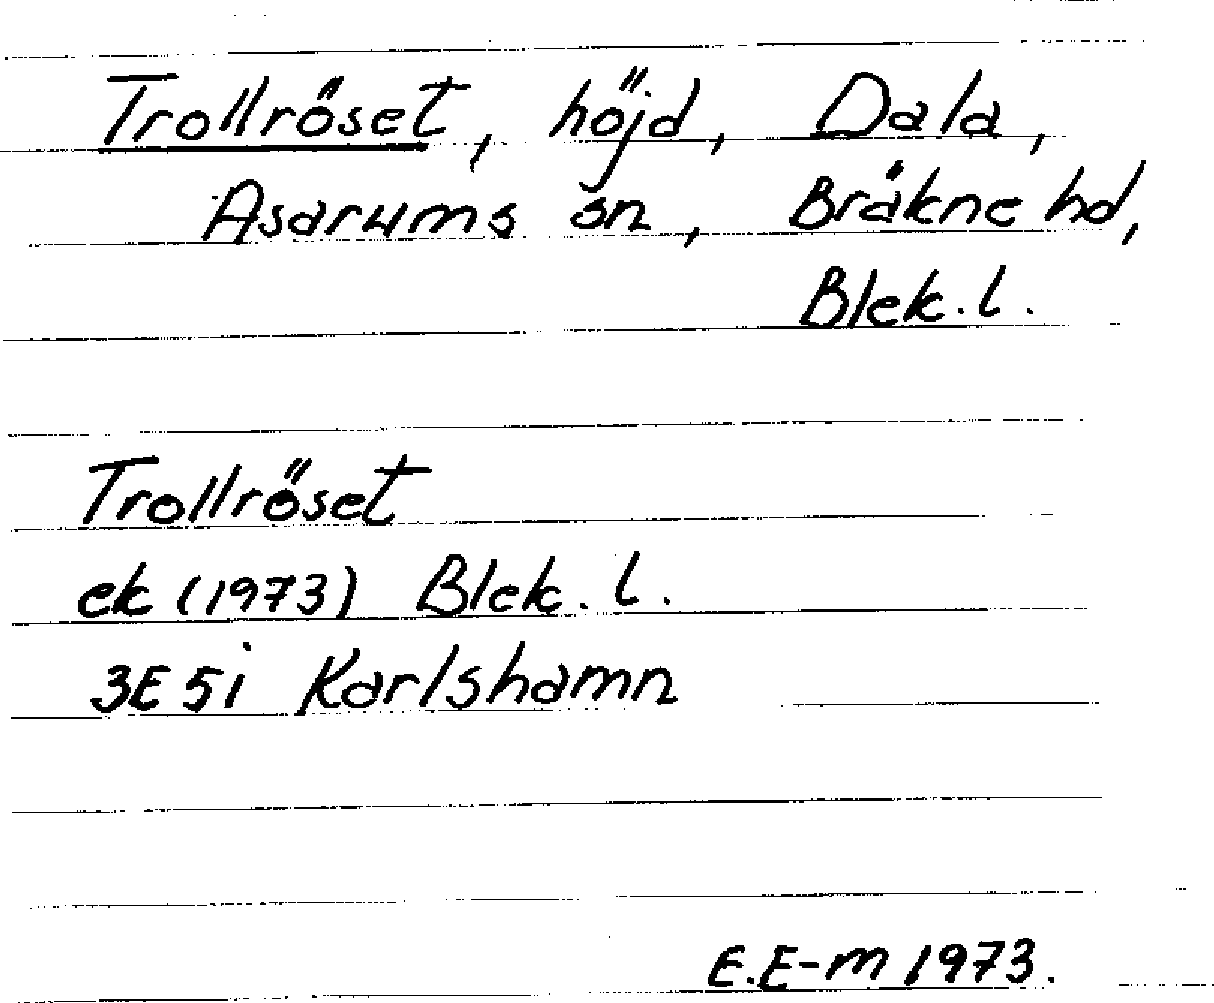 Trollröset, höjd, Dala,
Asarums sn, Bräkne hd,
Blek. l.
Trollröset
ek (1973) Blek. l.
3E 5i Karlshamn
E.E-m 1973.